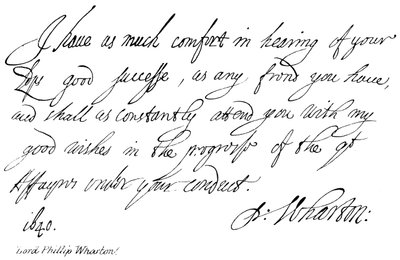 I have as much comfort in hearing of your
Lps good successe, as any frend you have,
and shall as constantly attend you with my
good wishes in the progresse of the gt
Affayres under your conduct.
1640.
P: Wharton:
Lord Phillip Wharton.